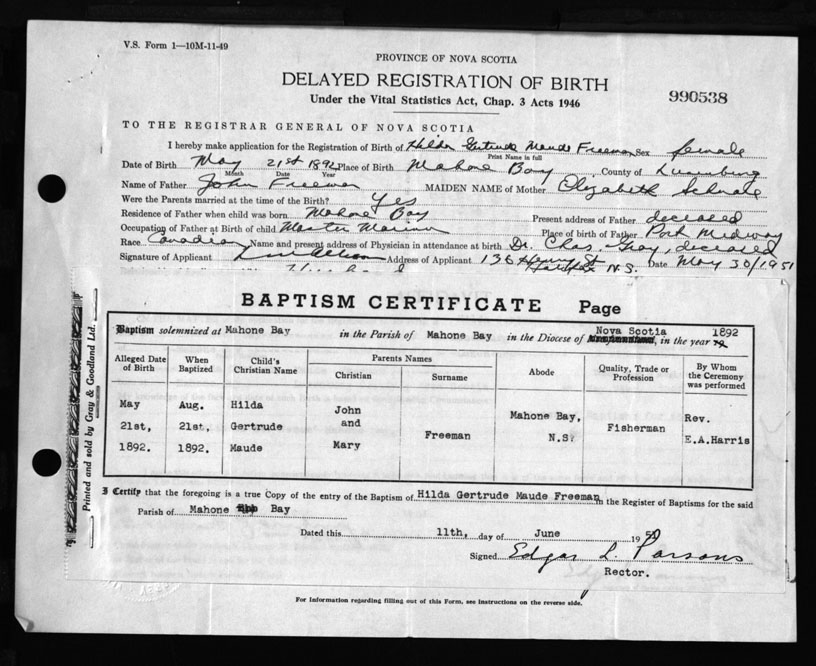 V.S. Form 1—10M-11-49
PROVINCE OF NOVA SCOTIA
DELAYED REGISTRATION OF BIRTH
990538
Under the Vital Statistics Act, Chap. 3 Acts 1946
TO THE REGISTRAR GENERAL OF NOVA SCOTIA
I hereby make application for the Registration of Birth of Hilda Gertrude Maude Freeman Sex female
Print Name in full
Date of Birth May 21st 1892 Place of Birth Mahone Bay, County of Lunenburg
Month Date Year
Name of Father John Freeman MAIDEN NAME of Mother Elizabeth
Were the Parents married at the time of the Birth? Yes
Residence of Father when child was born Mahone Bay Present address of Father deceased
Occupation of Father at Birth of child Master Mariner Place of birth of Father Port Midway
Race Canadian Name and present address of Physician in attendance at birth Dr. Chas. Gray, deceased
Signature of Applicant Address of Applicant 136 Henry St Halifax N.S. Date May 30/1951
BAPTISM CERTIFICATE Page
Baptism solemnized at Mahone Bay in the Parish of Mahone Bay in the Diocese of Nova Scotia in the year 1892
Alleged Date of Birth When Baptized Child's Christian Name Parents Names Christian Surname Abode Quality, Trade or Profession By Whom the Ceremony was performed
May Aug. Hilda John Mahone Bay, Rev.
21st, 21st, Gertrude and Freeman Fisherman
1892. 1892. Maude Mary N.S. E.A.Harris
I Certify that the foregoing is a true Copy of the entry of the Baptism of Hilda Gertrude Maude Freeman in the Register of Baptisms for the said
Parish of Mahone Bay
Dated this 11th, day of June 1951
Signed Edgar L. Parsons
Rector.
Printed and sold by Gray & Goodland Ltd.
For Information regarding filling out of this Form, see instructions on the reverse side.